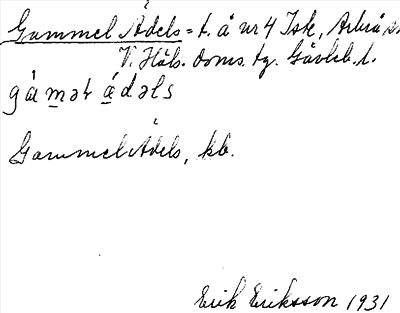 Gammel Ådels = t. å nr 4 Isk, Arbrå sn
V. Häls. doms. tg. Gävleb. l.
gámət ádəls
Gammel Ådels, kb.
Erik Eriksson 1931